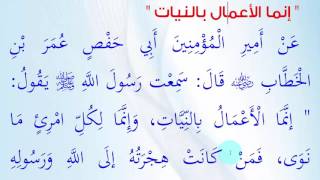 " إنما الأعمال بالنيات "
عَنْ أَمِيرِ الْمُؤْمِنِينَ أَبِي حَفْصٍ عُمَرَ بْنِ
الْخَطَّابِ ﷺ قَالَ: سَمِعْت رَسُولَ اللَّهِ ﷺ يَقُولُ:
" إنَّمَا الْأَعْمَالُ بِالنِّيَّاتِ، وَإِنَّمَا لِكُلِّ امْرِئٍ مَا
نَوَى، فَمَنْ كَانَتْ هِجْرَتُهُ إلَى اللَّهِ وَرَسُولِهِ